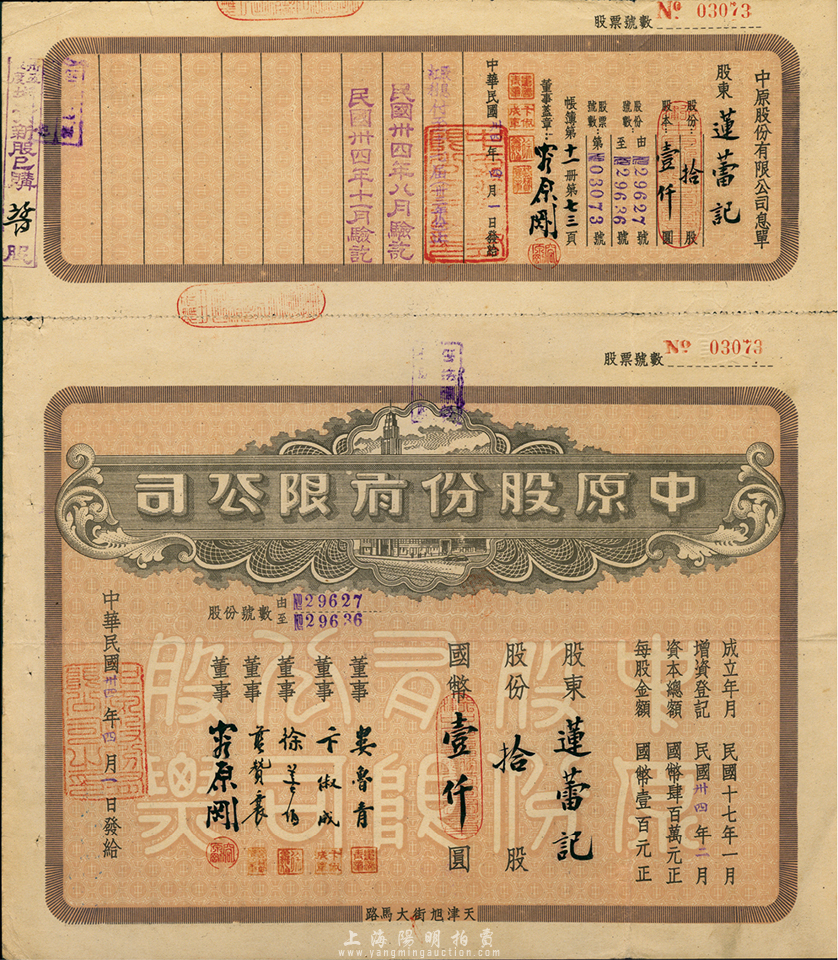 股票號數 Nº 03073
中原股份有限公司息單
股東 蓮蕾記
股份: 拾 股
股本: 壹仟 圓
股份號數: 由 29627 號 至 29636 號
股票號數: 第 03073 號
帳簿第十一冊第七三頁
董事蓋章:
中華民國卅四年四月一日發給
民國卅四年八月驗訖
民國卅四年十一月驗訖
新股已購
股票號數 Nº 03073
中原股份有限公司
股份號數 由 29627
至 29636
成立年月 民國十七年一月
增資登記 民國卅四年二月
資本總額 國幣肆百萬元正
每股金額 國幣壹百元正
股東 蓮蕾記
股份 拾 股
國幣 壹仟 圓
董事 婁魯青
董事 卞俶成
董事
董事
董事
中華民國卅四年四月一日發給
中原股份有限公司股票
天津旭街大馬路
上海陽明拍賣
www.yangmingauction.com